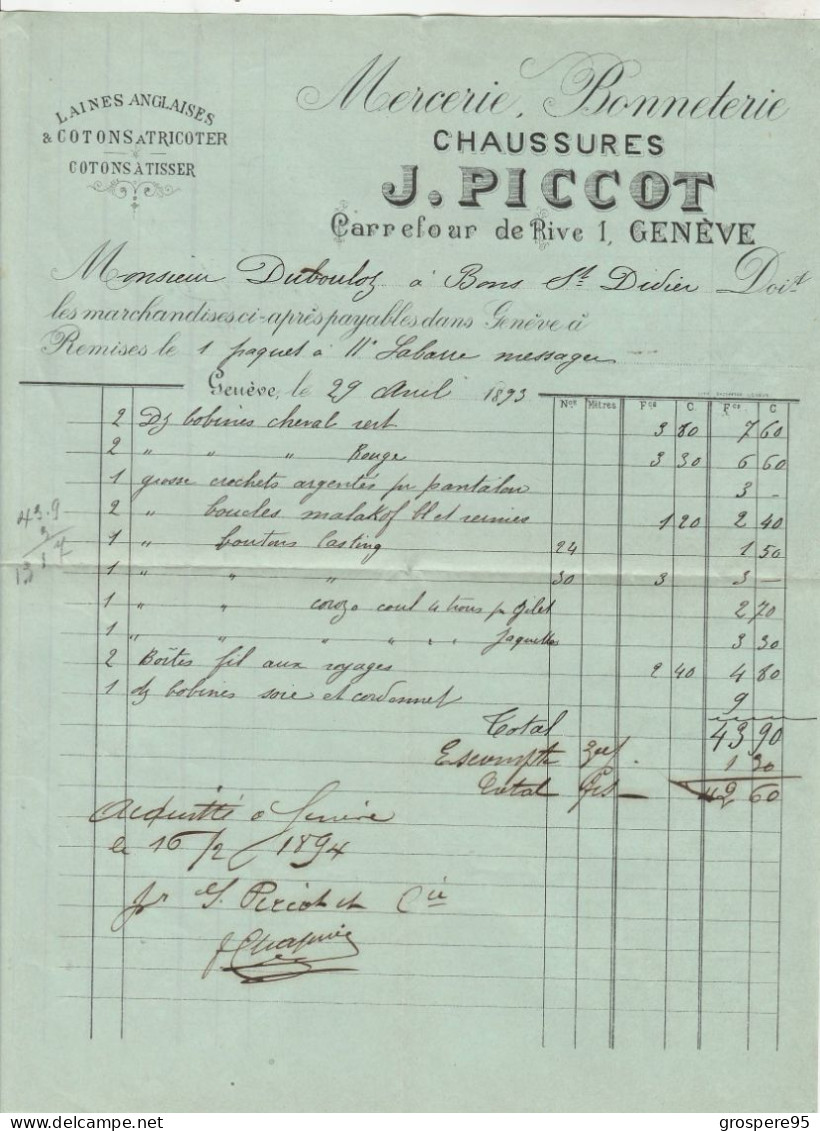 LAINES ANGLAISES
& COTONS A TRICOTER
COTONS À TISSER
Mercerie, Bonneterie
CHAUSSURES
J. PICCOT
Carrefour de Rive 1, GENÈVE
Monsieur Dubouloz à Bons St Didier Doit
les marchandises ci-après payables dans Genève à
Remises le 1 paquet à Labarre messager
Genève, le 29 Avril 1893
Nos Mètres Fcs C. Fcs C
2 Dz bobines cheval vert 3 80 7 60
2 " " " Rouge 3 30 6 60
1 grosse crochets argentés pr pantalon 3 -
2 " boucles malakof et vernies 1 20 2 40
1 " boutons lasting 24 1 50
1 " " " 30 3 3 -
1 " " corozo coul 4 trous pr gilet 2 70
1 " " " " " " Jaquettes 3 30
2 Boîtes fil aux voyages 2 40 4 80
1 dz bobines soie et cordonnet 9
43.9
3
13 1 7
Total 43 90
Escompte 1 30
Total frs 42 60
Acquitté à Genève
le 16/2 1894
pr J. Piccot et Cie
grospere95